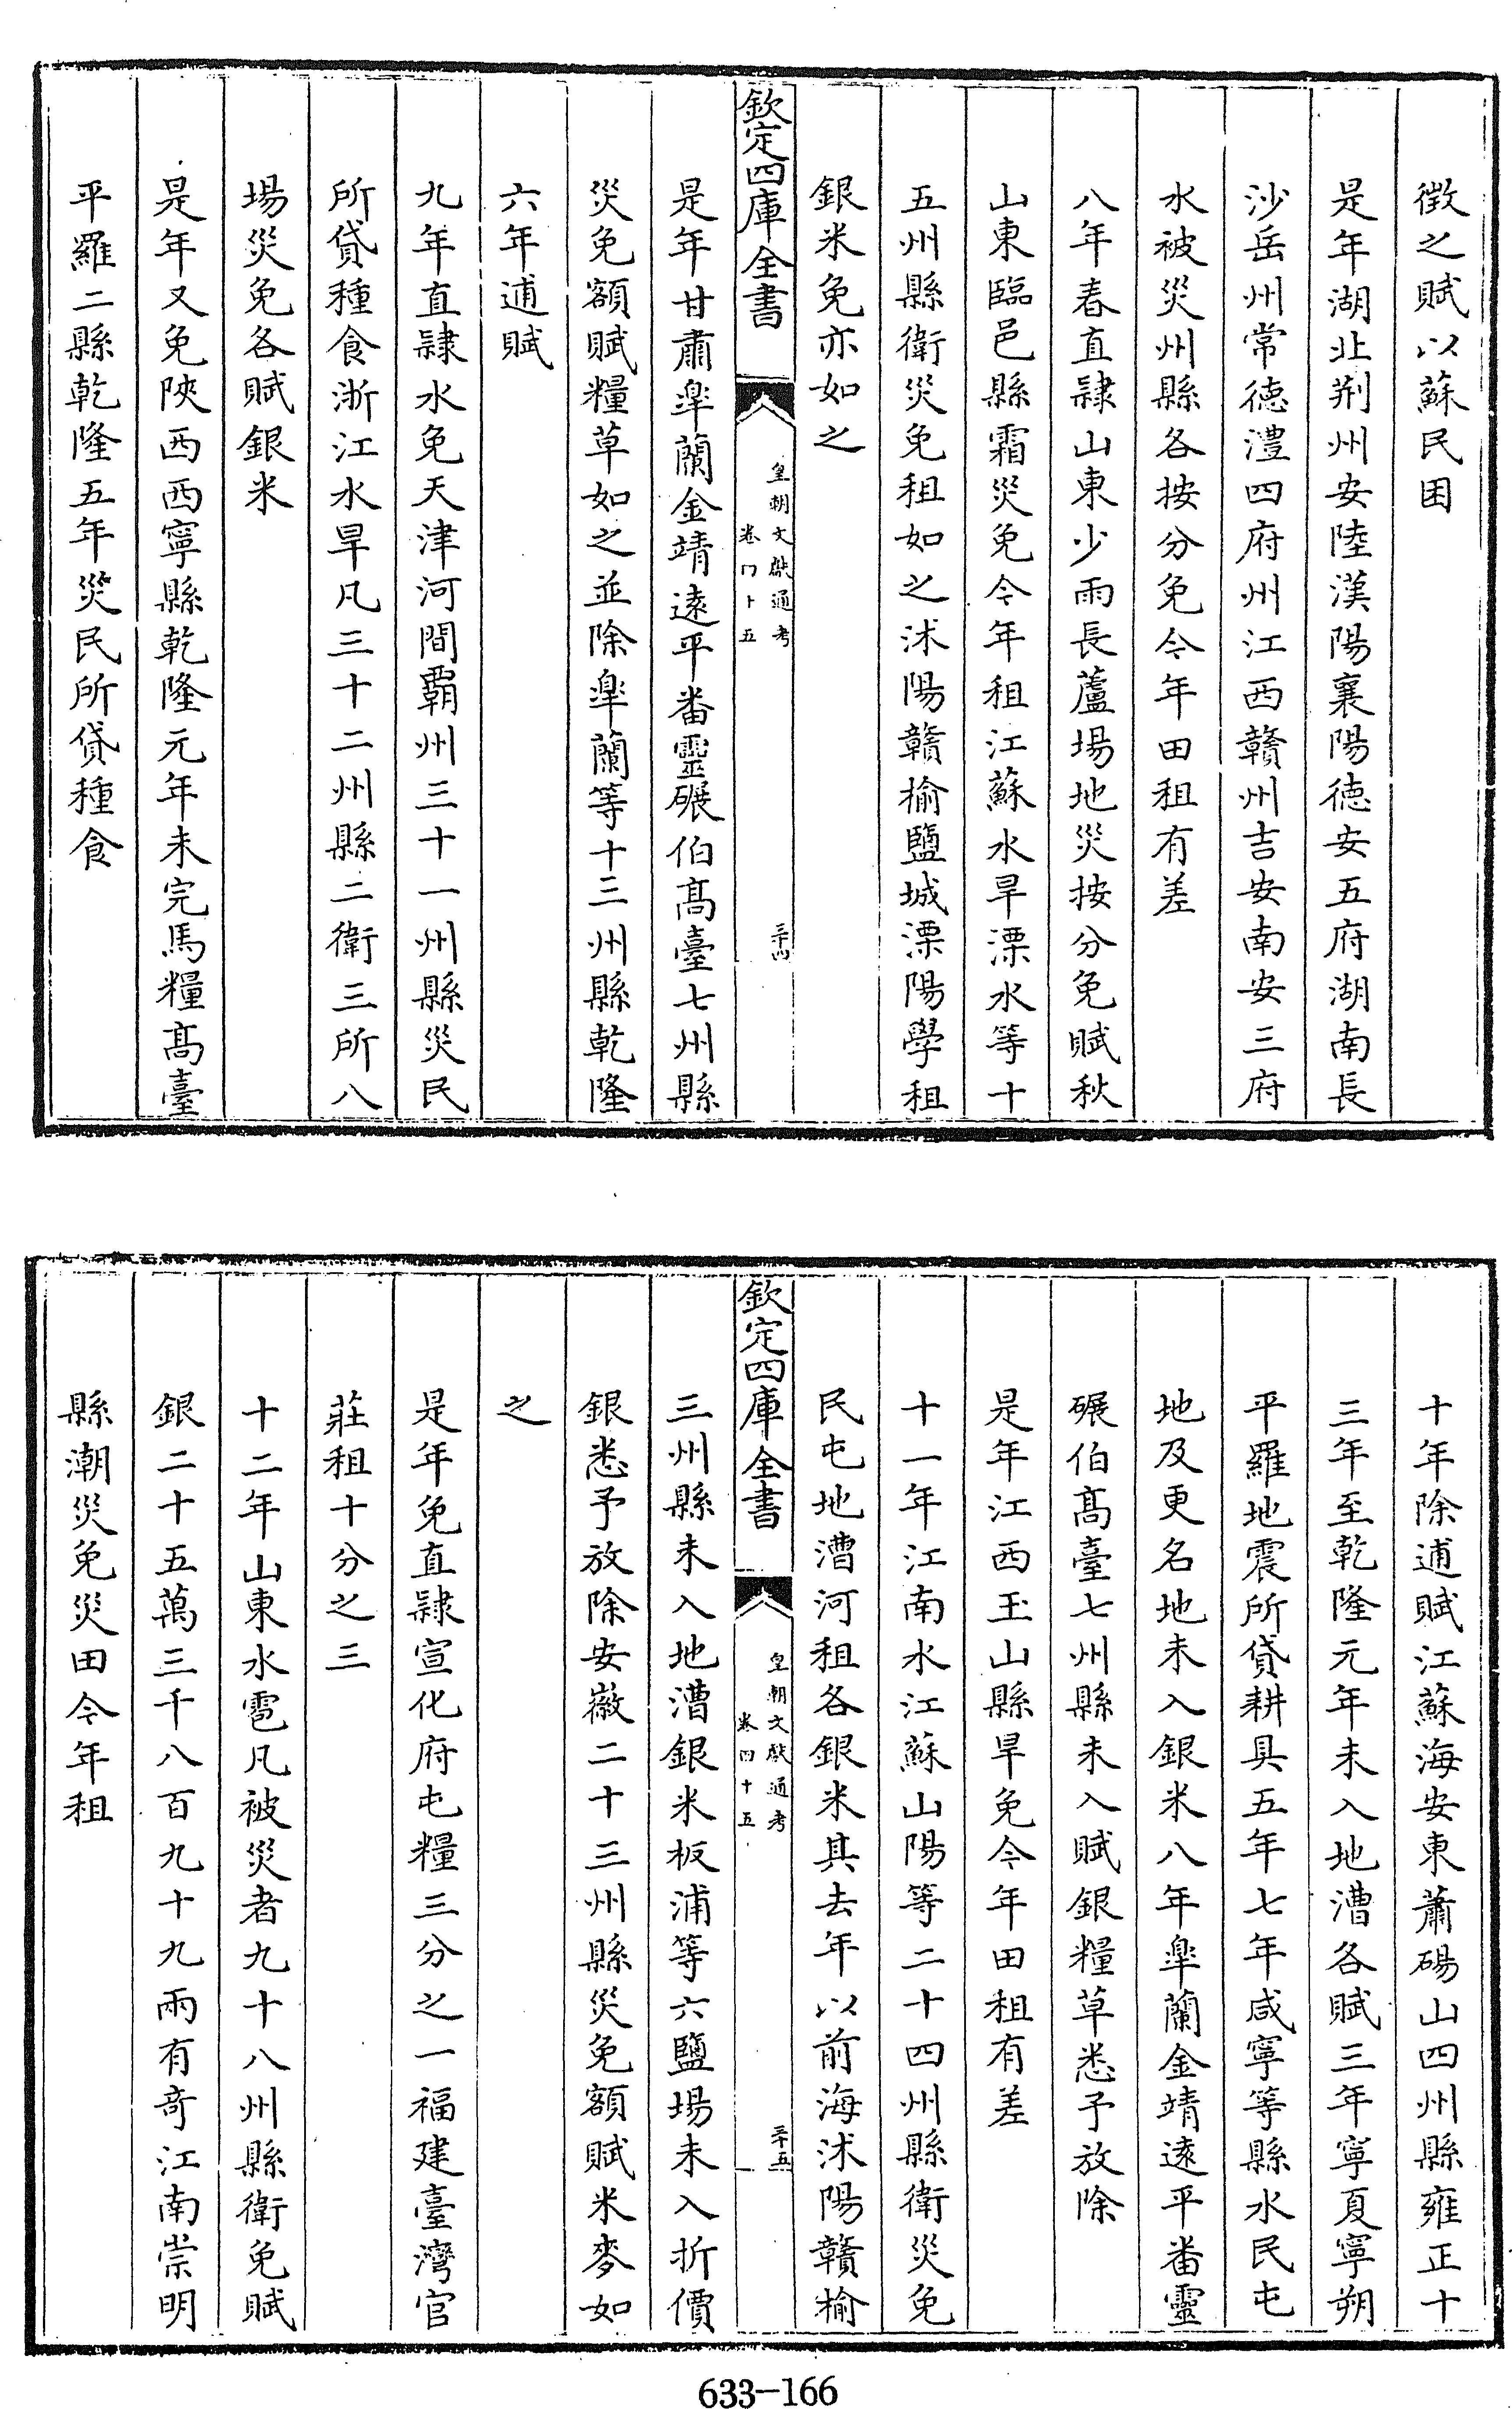 徴之賦以蘇民困
是年湖北荆州安陸漢陽襄陽徳安五府湖南長
沙岳州常徳澧四府州江西贛州吉安南安三府
水被災州縣各按分免今年田租有差
八年春直隷山東少雨長蘆場地災按分免賦秋
山東臨邑縣霜災免今年租江蘇水旱溧水等十
五州縣衛災免租如之沭陽贛榆鹽城溧陽學租
銀米免亦如之
欽定四庫全書
皇朝文獻通考
卷四十五
三十四
是年甘肅臯蘭金靖遠平番靈碾伯髙臺七州縣
災免額賦糧草如之並除臯蘭等十三州縣乾隆
六年逋賦
九年直隷水免天津河間覇州三十一州縣災民
所貸種食浙江水旱凡三十二州縣二衛三所八
場災免各賦銀米
是年又免陜西西寧縣乾隆元年未完馬糧髙臺
平羅二縣乾隆五年災民所貸種食
十年除逋賦江蘇海安東蕭碭山四州縣雍正十
三年至乾隆元年未入地漕各賦三年寧夏寧朔
平羅地震所貸耕具五年七年咸寧等縣水民屯
地及更名地未入銀米八年臯蘭金靖遠平番靈
碾伯髙臺七州縣未入賦銀糧草悉予放除
是年江西玉山縣旱免今年田租有差
十一年江南水江蘇山陽等二十四州縣衛災免
民屯地漕河租各銀米其去年以前海沭陽贛榆
欽定四庫全書
皇朝文獻通考
卷四十五
三十五
三州縣未入地漕銀米板浦等六鹽場未入折價
銀悉予放除安徽二十三州縣災免額賦米麥如
之
是年免直隷宣化府屯糧三分之一福建臺灣官
莊租十分之三
十二年山東水雹凡被災者九十八州縣衛免賦
銀二十五萬三千八百九十九兩有竒江南崇明
縣潮災免災田今年租
633-166